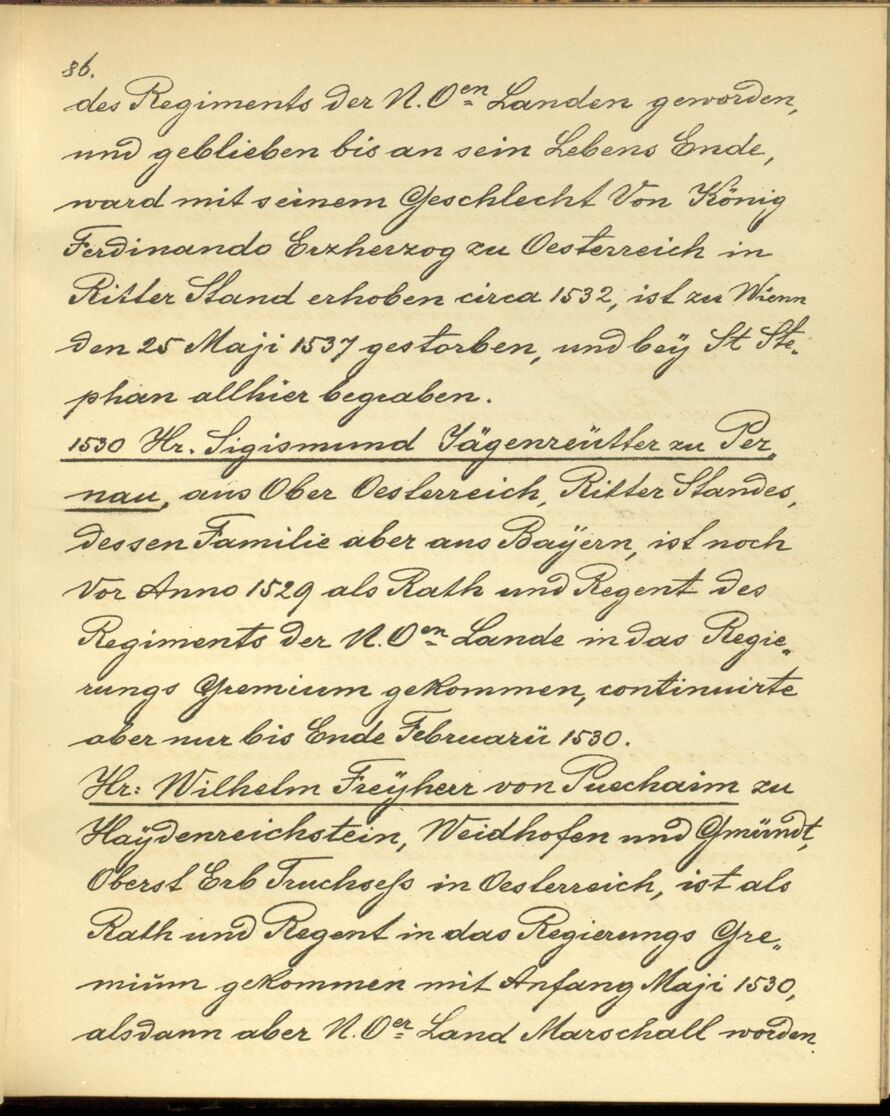 86.
des Regiments der N. Oen Landen geworden,
und geblieben bis an sein Lebens Ende,
ward mit seinem Geschlecht Von König
Ferdinando Erzherzog zu Oesterreich in
Ritter Stand erhoben circa 1532, ist zu Wienn
den 25 Maji 1537 gestorben, und beÿ St Ste„
phan allhier begraben.
1530 Hr. Sigismund Jägenreütter zu Per„
nau, aus Ober Oesterreich, Ritter Standes,
dessen Familie aber aus Baÿern, ist noch
Vor Anno 1529 als Rath und Regent des
Regiments der N. Oen Lande in das Regie„
rungs Gremium gekommen, continuirte
aber nur bis Ende Februarü 1530.
Hr: Wilhelm Freÿherr von Puechaim zu
Haÿdenreichstein, Weidhofen und Gmündt,
Oberst Erb Truchseß in Oesterreich, ist als
Rath und Regent in das Regierungs Gre„
mium gekommen mit Anfang Maji 1530,
alsdann aber N. Oer Land Marschall worden